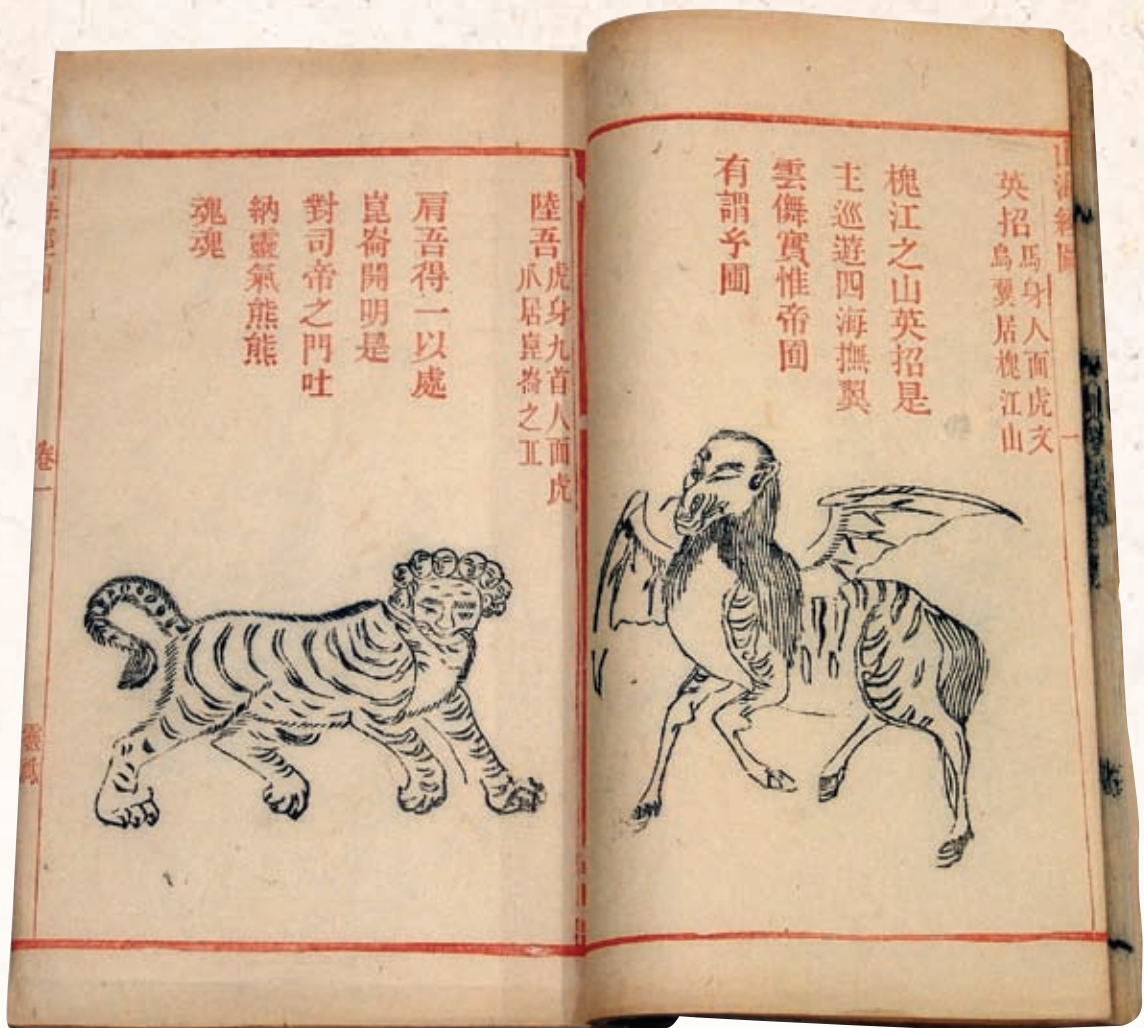 山海經圖
一
英招
馬身人面虎文
鳥翼居槐江山
槐江之山英招是
主巡遊四海撫翼
雲儛實惟帝囿
有謂圃
陸吾
虎身九首人面虎
爪居崑崙之丘
肩吾得一以處
崑崙開明是
對司帝之門吐
納靈氣熊熊
魂魂
卷一